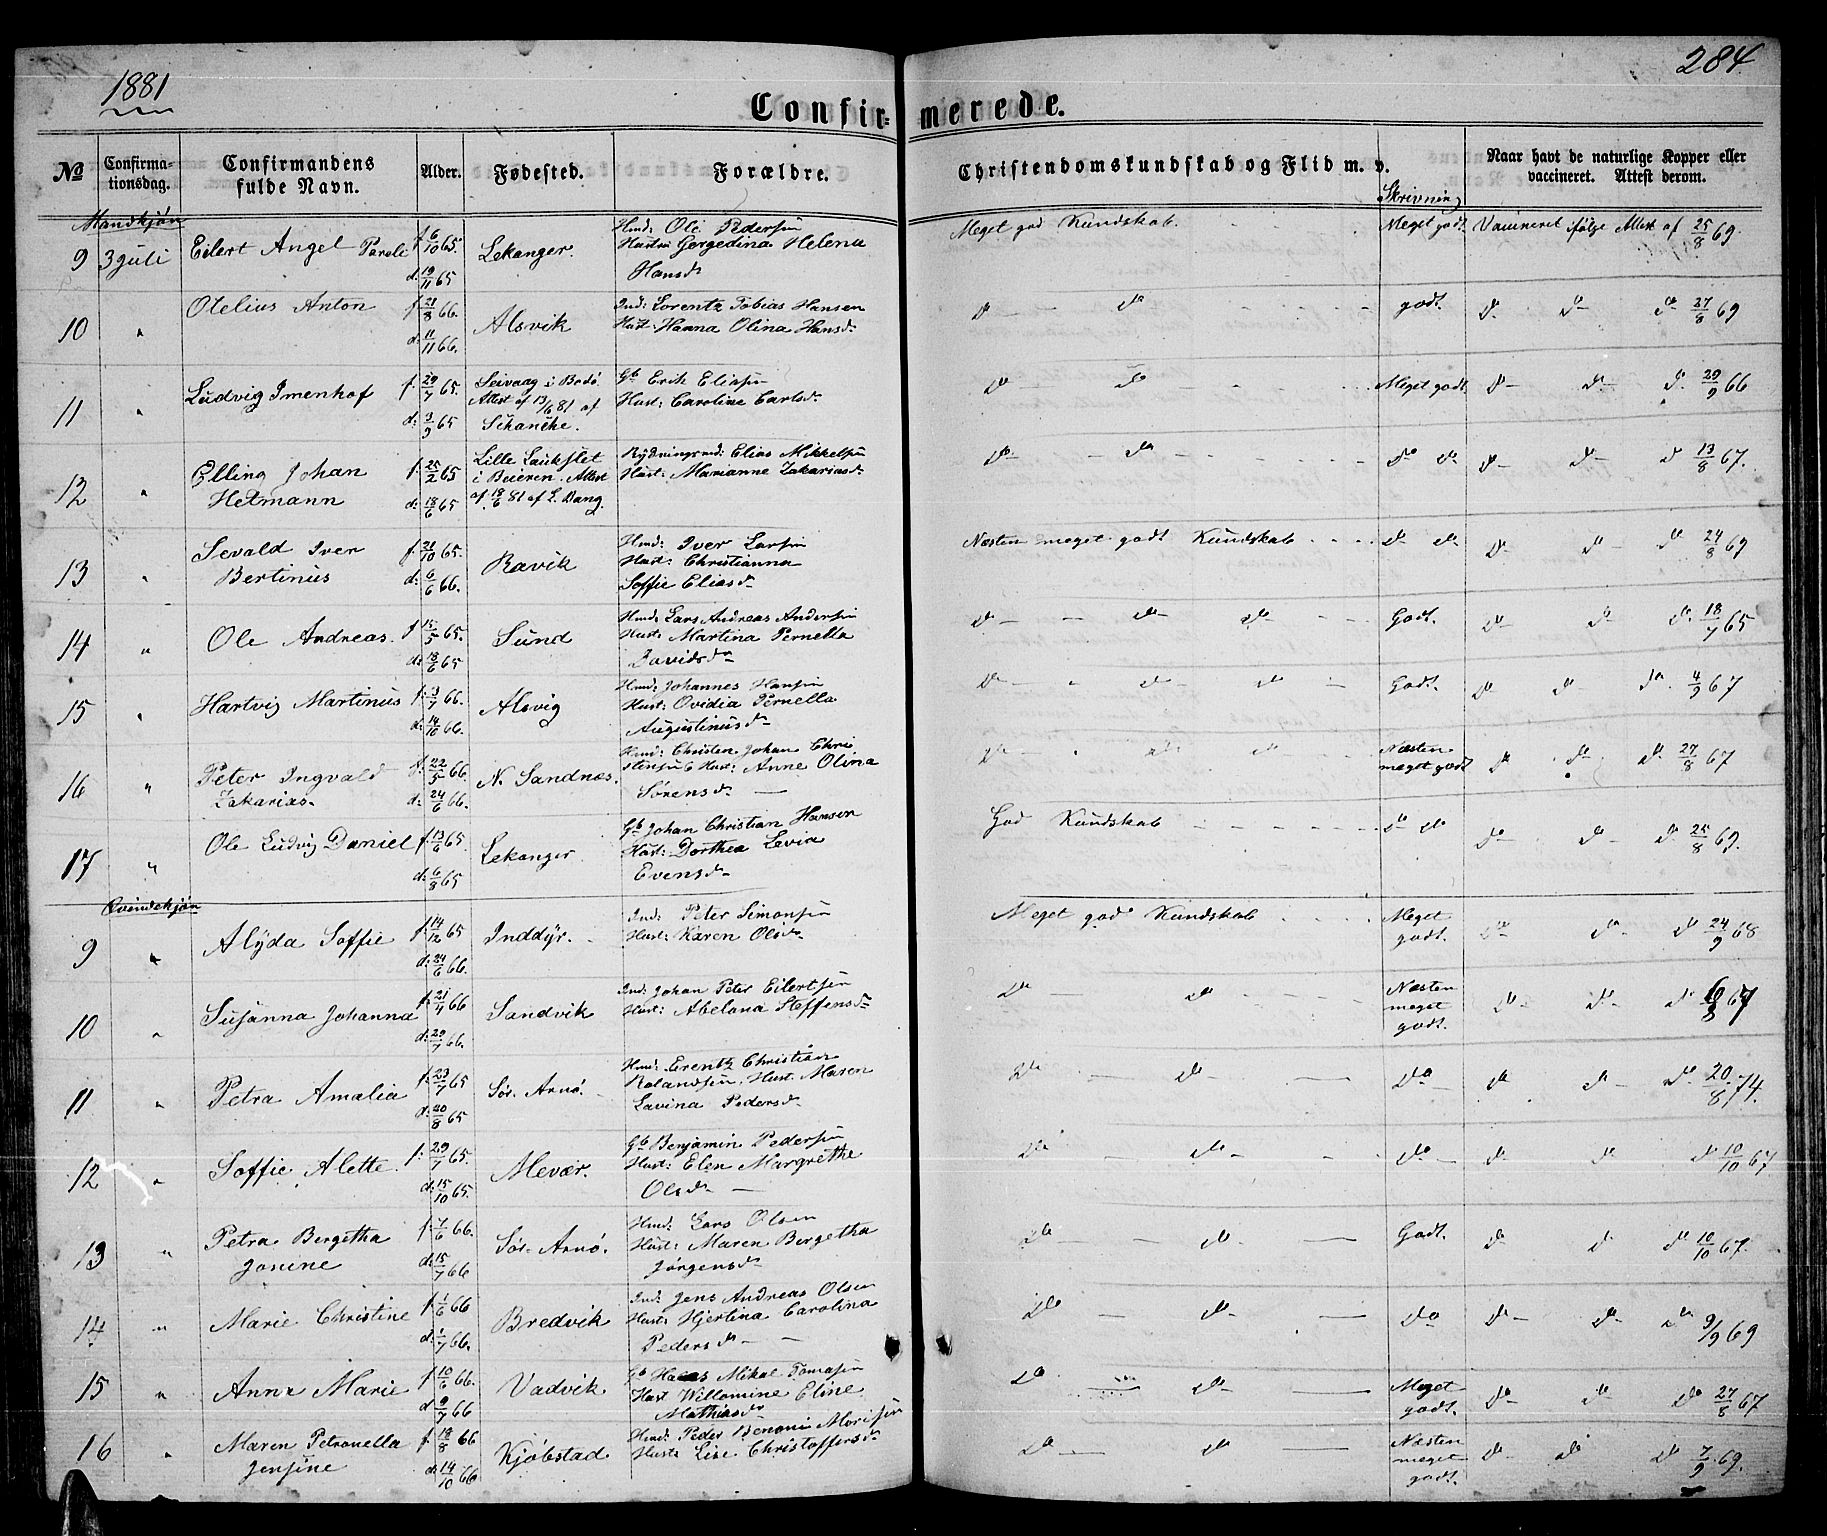 1881
284
Confir=merede.
No
Confirma-
tionsdag.
Confirmandens
fulde Navn.
Alder.
Fødested.
Forældre.
Christendomskundskab og Flid m. v.
Skrivning
Naar havt de naturlige Kopper eller
vaccineret. Attest derom.
Mandkjøn
9 3 Juli Eilert Angel Pareli f. 6/10 65. d: 19/11 65 Lekanger. Hmd: Ole Pedersen
Hustru Gergedina Helena
Hansd.
Meget god Kundskab. Meget godt. Vaccineret ifølge Attest af 25/8 69.
10 " Otelius Anton f. 21/8 66. d: 11/11 66. Alsvik Ind: Lorentz Tobias Hansen
Hust: Hanna Olina Hansd.
do — do godt. do do do 27/8 69
11 " Ludvig Imenhof f. 29/7 65. d: 3/9 65 Seivaag i Bodø.
Attest af 13/6 81 af
Schanche.
Gb Erik Eliasen
Hust: Caroline Carlsd.
do — do Meget godt do do do 29/9 66
12 " Elling Johan
Hetmann f. 25/2 65 d: 18/6 65
Lille Laukslet
i Beieren. Attest
af 18/6 81 af L. Dang.
Rydningsmd: Elias Mikkelsen
Hust: Marianne Zakariasd.
do — do do do do do do 13/8 67.
13 " Sevald Iver
Bertinus f. 21/10 65. d: 6/6 66. Ravik Hmd: Iver Larsen
Hust: Christianna
Soffie Eliasd.
Næsten meget godt Kundskab do do do do do 24/8 69
14 " Ole Andreas. f 15/5 65. d: 18/6 65 Sund Hmd: Lars Andreas Andersen
Hust: Martina Pernella
Davidsd.
do — do do Godt. do do do 18/7 65
15 " Hartvig Martinus f. 3/7 66. d. 14/10 66. Alsvig Hmd: Johannes Hansen
Hust: Ovidia Pernella
Augustinusd.
do " do do Godt. do do do 4/9 67
16 " Peter Ingvald
Zakarias. f. 22/5 66. d: 24/6 66. N. Sandnæs. Hmd: Christen Johan Chri
stensen & Hust: Anne Olina
Sørensd. —
do do do Næsten
meget godt do do do 27/8 67
17 " Ole Ludvig Daniel f. 13/6 65. d: 6/8 65 Lekanger. Gb Johan Christian Hansen
Hust: Dorthea Levina
Evensd.
God Kundskab do do do do do 25/8 69.
Qvindekjøn
9 " Alyda Soffie f. 14/12 65 d. 24/6 66. Inddyr. Ind: Peter Simonsen
Hust: Karen Olsd.
Meget god Kundskab Meget
godt. do do do 24/9 68
10 " Susanna Johanna f. 21/4 66 d: 29/7 66. Sandvik Ind: Johan Peter Eilertsen
Hust: Abelona Steffensd.
do — do Næsten
meget
godt. do do do 67
11 " Petra Amalia f. 23/7 65 d. 20/8 65 Sør. Arnø. Hmd: Lrentz Christian
Rolandsen. Hust. Maren
Lavina Pedersd.
do — do do do do do 20/8 74.
12 " Soffie Alette. f. 29/7 65. d: 15/10 65. Mevær. Gb Benjamin Pedersen
Hust: Elen Margrethe
Olsd. —
do — do — do do do do 10/10 67
13 " Petra Bergetha
Jonine f. 7/6 66. d. 15/7 66 Sør-Arnø. Hmd: Lars Olsen
Hust: Maren Bergetha
Jørgensd.
do — do — Godt. do do do 10/10 67.
14 " Marie Christine f. 1/6 66 d: 1/7 66. Bredvik Ind: Jens Andreas Olsen
Hust: Hjertina Carolina
Pedersd. —
do — do — do do do do 9/9 69
15 " Anna Marie f 10/6 66. d 9/7 66 Vadvik Gb Hans Mikal Tomasen
Hust Willomine Eline
Mathiasd.
do — do — Meget
godt. do do do 27/8 67
16 " Maren Petronella
Jensine f. 18/8 66 d. 14/10 66 Kjøbstad Hmd: Peder Benoni Morisen
Hust: Lise Christoffersd.
do — do — Næsten
meget
godt. do do do 7/9 69.